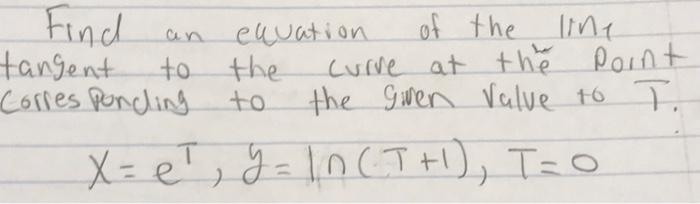 Find an equation of the line
tangent to the curve at the point
Corresponding to the given value to T.
X = e^T, y = ln(T+1), T=0